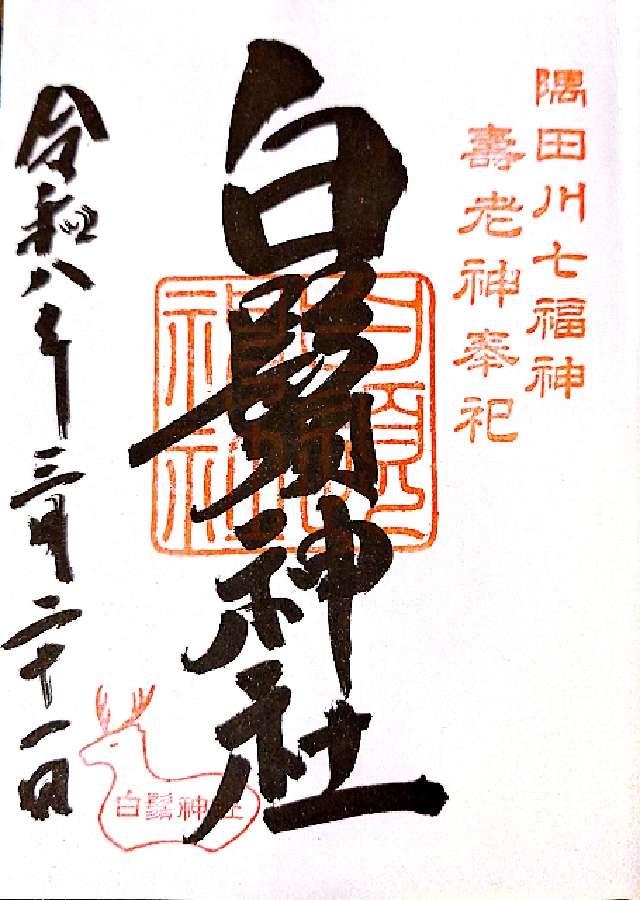 隅田川七福神
壽老神奉祀
白鬚神社
令和八年三月二十一日
白鬚神社